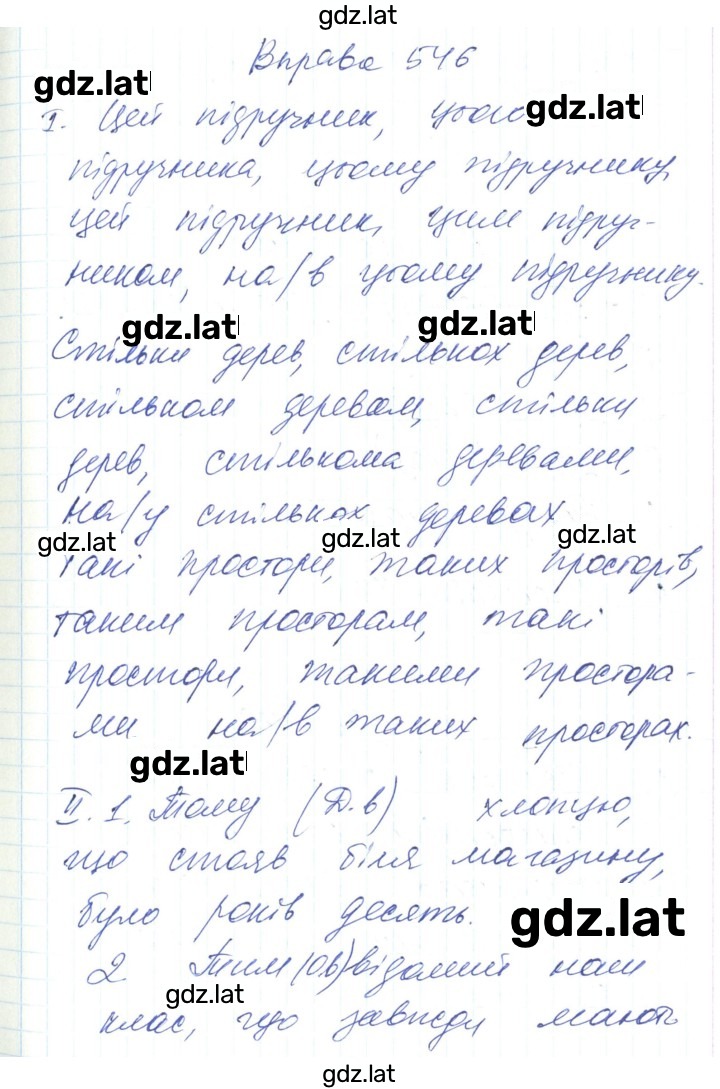 gdz.lat
Вправа 546
gdz.lat
gdz.lat
I. Цей підручник, цього
підручника, цьому підручнику,
цей підручник, цим підруч-
ником, на/в цьому підручнику.
gdz.lat
gdz.lat
Стільки дерев, стількох дерев,
стільком деревам, стільки
дерев, стількома деревами,
на/у стількох деревах
gdz.lat
gdz.lat
gdz.lat
Такі простори, таких просторів,
таким просторам, такі
простори, такими простора-
ми на/в таких просторах.
gdz.lat
II. 1. Тому (Д.в) хлопцю,
що стояв біля магазину,
було років десять.
gdz.lat
2 Тим (Ов) відомий наш
gdz.lat
клас, що завжди мають
gdz.lat